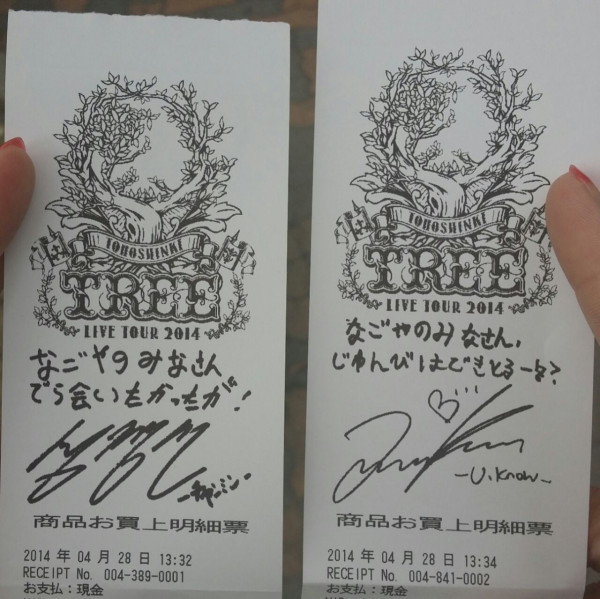 TOHOSHINKI
TREE
LIVE TOUR 2014
なごやのみなさん
でら会いたかったが!
チャンミン
商品お買上明細票
2014 年 04 月 28 日 13:32
RECEIPT No. 004-389-0001
お支払:現金
TOHOSHINKI
TREE
LIVE TOUR 2014
なごやのみなさん、
じゅんびはできとるーな?
-U.Know-
商品お買上明細票
2014 年 04 月 28 日 13:34
RECEIPT No. 004-841-0002
お支払:現金